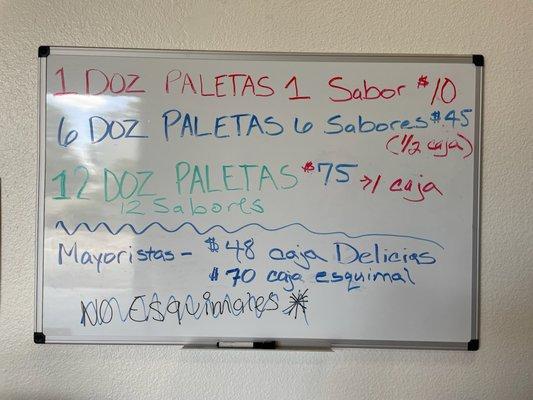 1 DOZ PALETAS 1 Sabor $10
6 DOZ PALETAS 6 Sabores $45
(1/2 caja)
12 DOZ PALETAS $75 → 1 caja
12 Sabores
Mayoristas - $48 caja Delicias
$70 caja esquimal
NO Esquimales *